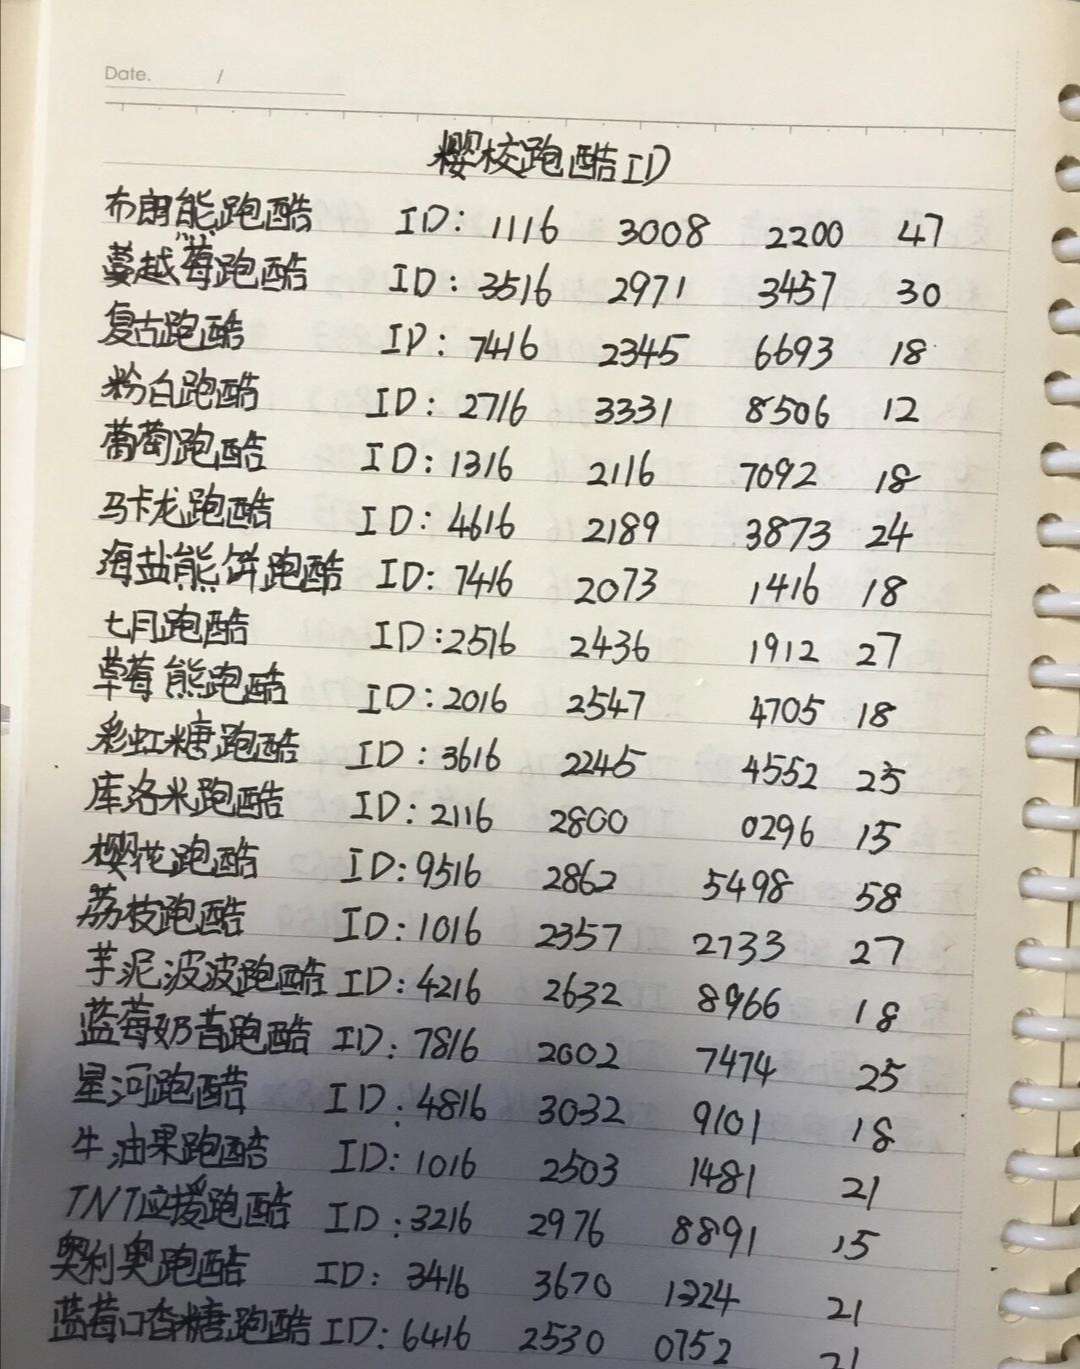 Date. /
樱校跑酷ID
布朗熊跑酷 ID: 1116 3008 2200 47
蔓越莓跑酷 ID: 3516 2971 3457 30
复古跑酷 ID: 7416 2345 6693 18
粉白跑酷 ID: 2716 3331 8506 12
葡萄跑酷 ID: 1316 2116 7092 18
马卡龙跑酷 ID: 4616 2189 3873 24
海盐熊饼跑酷 ID: 7416 2073 1416 18
七月跑酷 ID: 2516 2436 1912 27
草莓熊跑酷 ID: 2016 2547 4705 18
彩虹糖跑酷 ID: 3616 2245 4552 25
库洛米跑酷 ID: 2116 2800 0296 15
樱花跑酷 ID: 9516 2862 5498 58
荔枝跑酷 ID: 1016 2357 2733 27
芋泥波波跑酷 ID: 4216 2632 8966 18
蓝莓奶昔跑酷 ID: 7816 2002 7474 25
星河跑酷 ID: 4816 3032 9101 18
牛油果跑酷 ID: 1016 2503 1481 21
TNT应援跑酷 ID: 3216 2976 8891 15
奥利奥跑酷 ID: 3416 3670 1224 21
蓝莓口香糖跑酷 ID: 6416 2530 0752 21